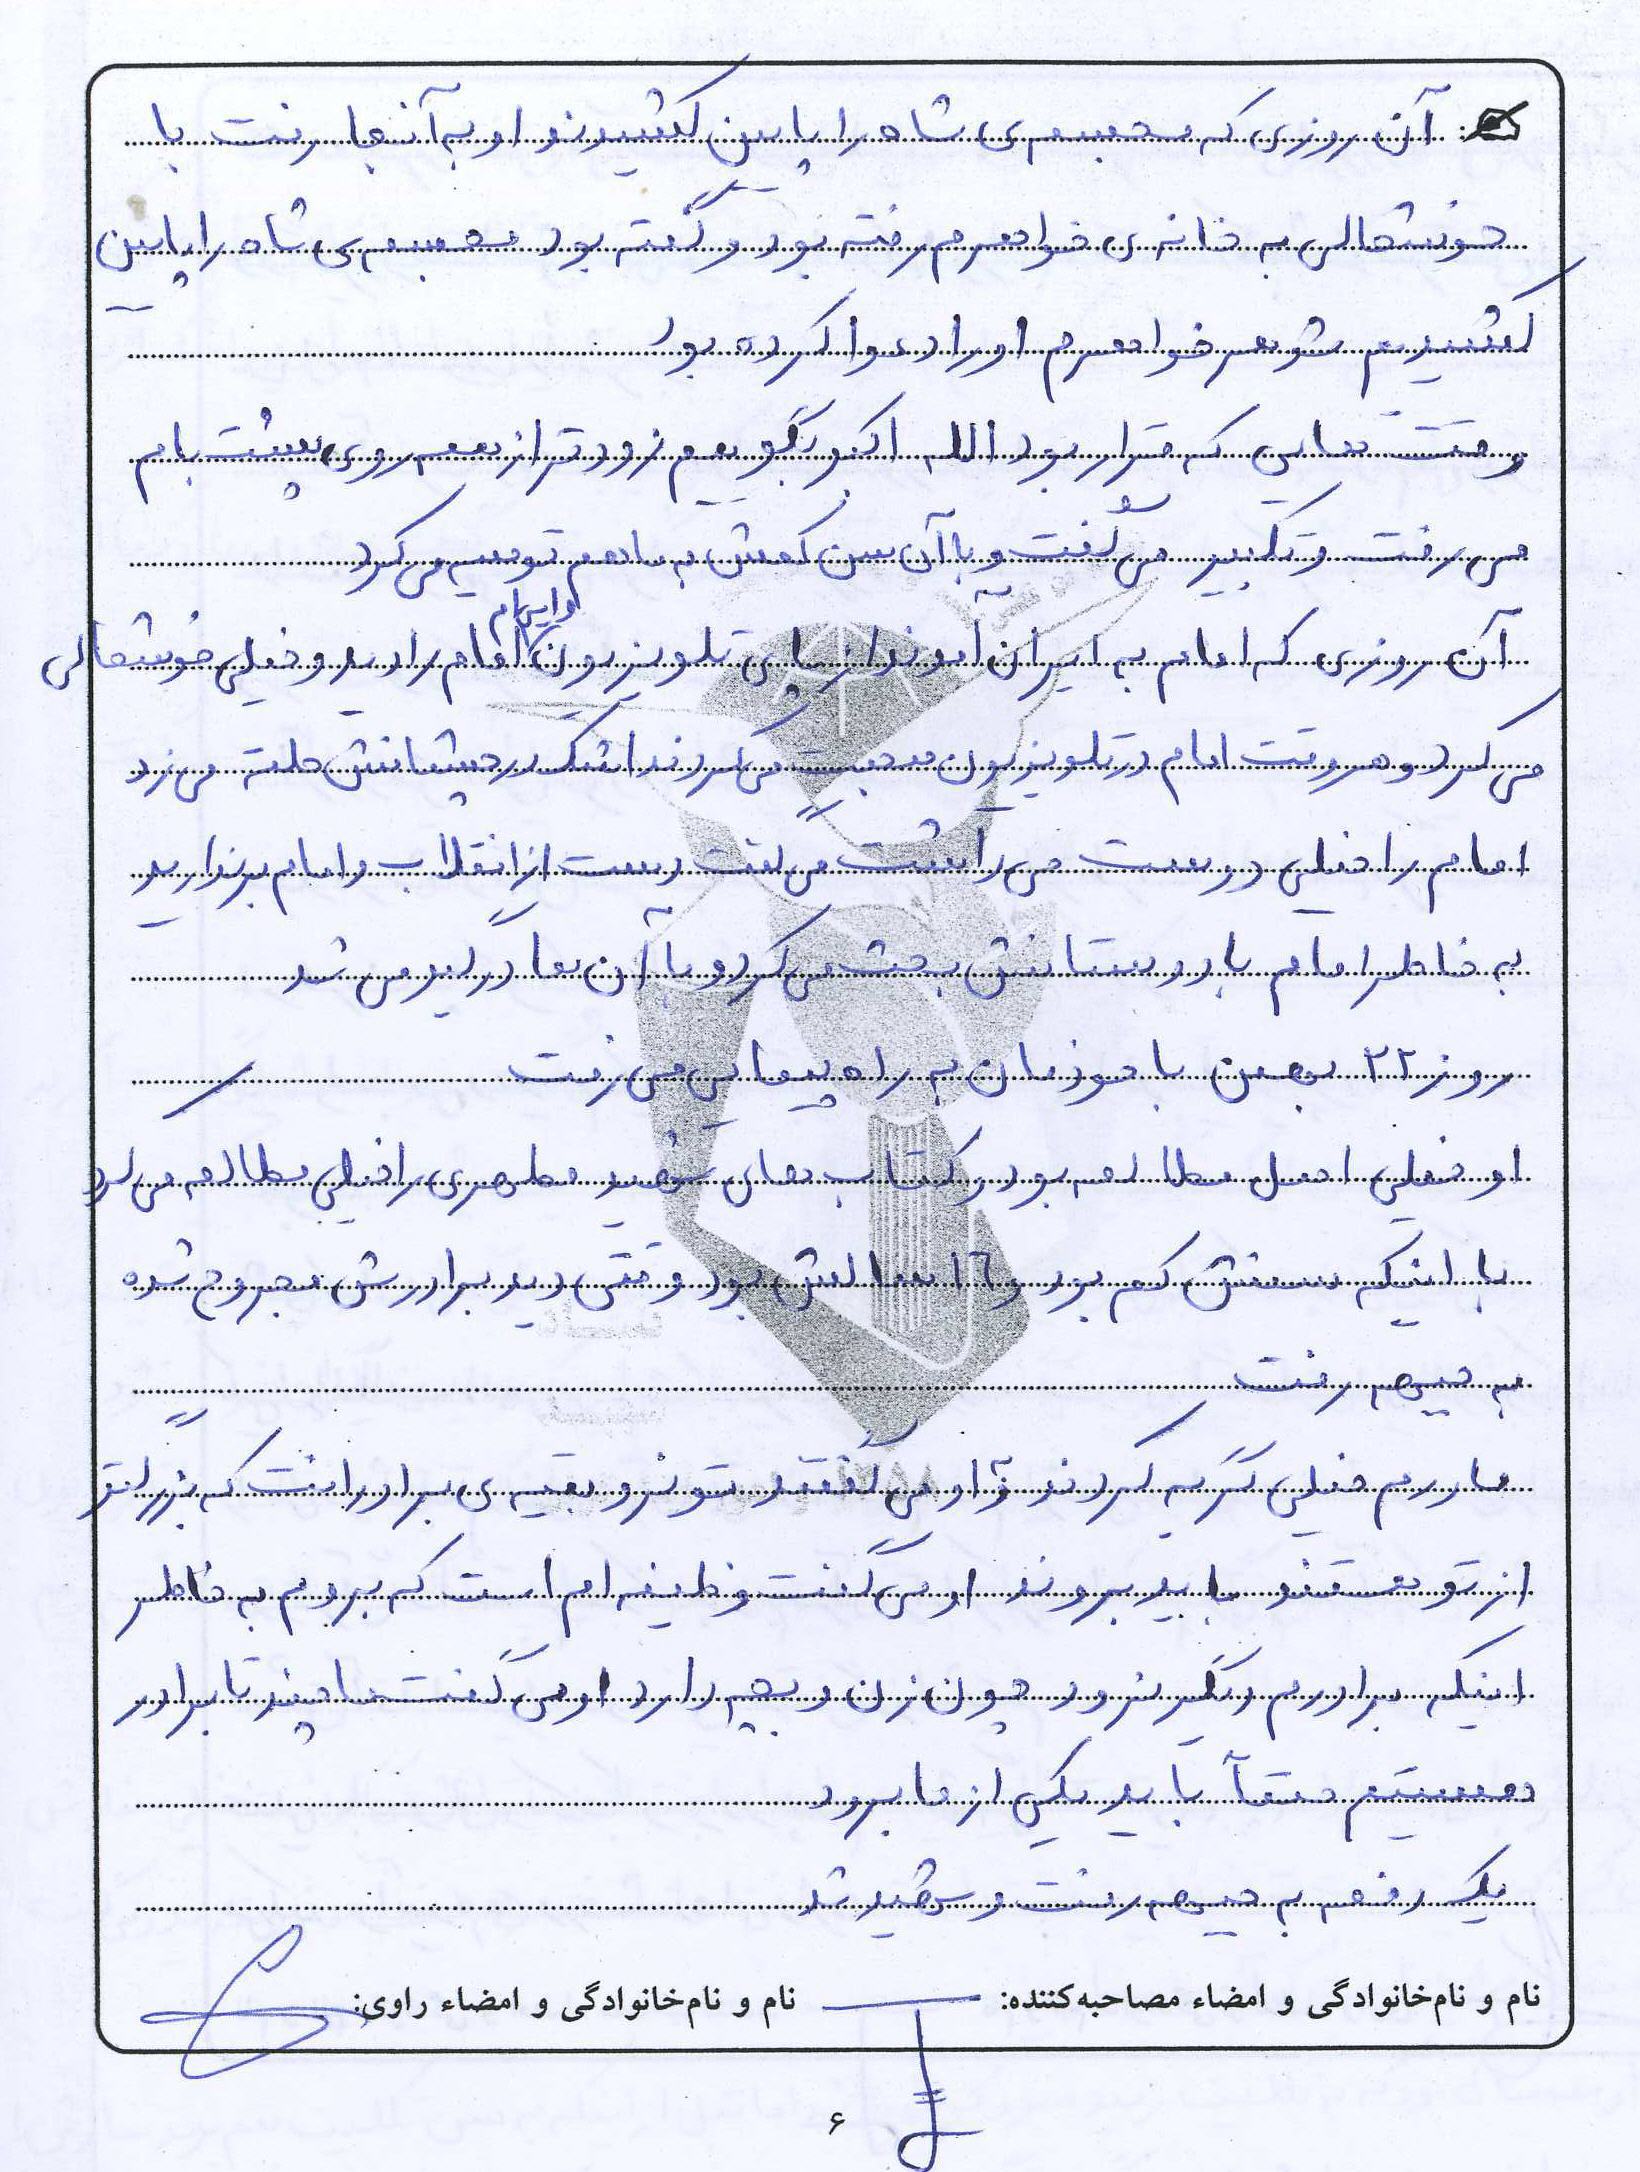 آن روزی که مجسمه ی شاه را پایین کشیدند او به آنجا رفت با
خوشحالی به خانه ی خواهرم رفته بود و گفته بود مجسمه ی شاه را پایین
کشیدیم شوهر خواهرم او را دعوا کرده بود
وقت هایی که قرار بود الله اکبر بگوییم زودتر از همه روی پشت بام
می رفت و تکبیر می گفت و با آن سن کمش به ما هم توصیه می کرد
آن روزی که امام به ایران آمدند از پای تلویزیون امام را دید و خیلی خوشحالی
می کرد و هر وقت امام در تلویزیون صحبت می کردند اشک در چشمانش حلقه می زد
امام را خیلی دوست می داشت می گفت دست از انقلاب و امام برندارید
به خاطر امام با دوستانش بحث می کرد و با آن ها درگیر می شد
روز ۲۲ بهمن با خودمان به راه پیمایی می رفت
او خیلی اهل مطالعه بود و کتاب های شهید مطهری را خیلی مطالعه می کرد
با اینکه سنش کم بود و ۱۶ سالش بود وقتی دید برادرش مجروح شده
به جبهه رفت
مادرم خیلی گریه کردند و به او می گفتند تو نرو بقیه ی برادرانت که بزرگتر
از تو هستند باید بروند او می گفت وظیفه ام است که بروم به خاطر
اینکه برادرم دیگر نرود چون زن و بچه دارد او می گفت ما چند تا برادر
هستیم حتماً باید یکی از ما برود
یک دفعه به جبهه رفت و شهید شد
نام و نام‌خانوادگی و امضاء مصاحبه‌کننده: نام و نام‌خانوادگی و امضاء راوی:
۶